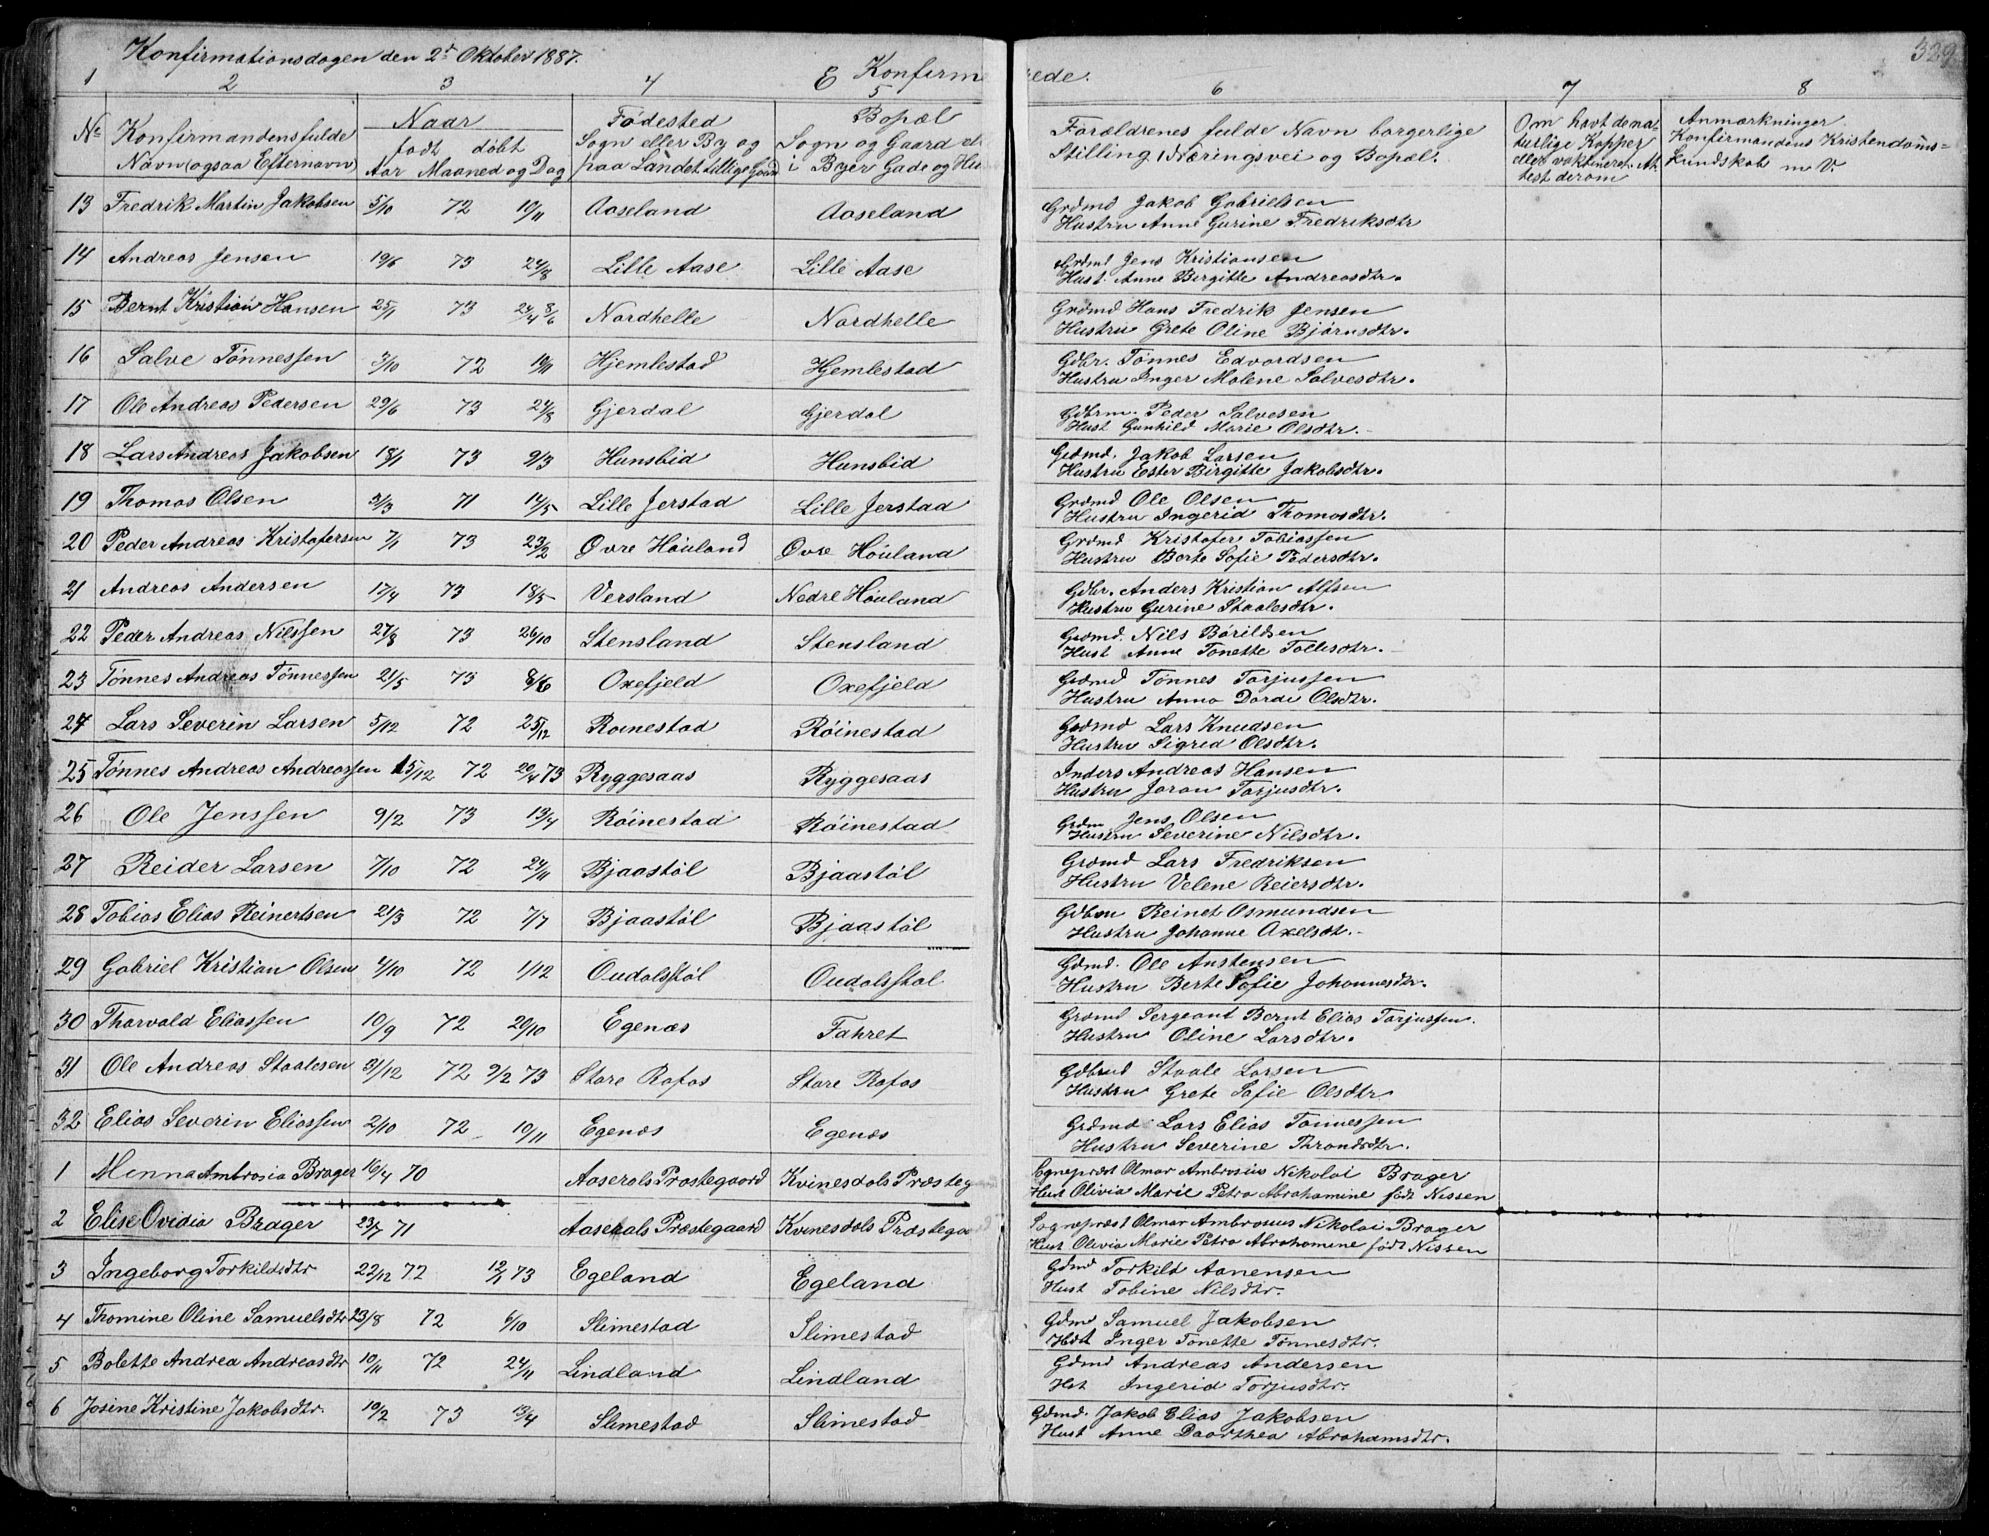 Konfirmationsdagen den 2d Oktober 1887.
E Konfirmerede.
329
1 2 3 4 5 6 7 8
No Konfirmandens fulde Navn (ogsaa Efternavn)
Naar født døbt Aar Maaned og Dag
Fødested Sogn eller By og paa Landet tillige Gaard
Bopæl Sogn og Gaard i Byer Gade og Hus
Forældrenes fulde Navn borgerlige Stilling, Næringsvei og Bopæl.
Om havt de naturlige Kopper eller vaktineret. Attest derom
Anmærkninger. Konfirmandens Kristendoms=Kundskab m V.
13 Fredrik Martin Jakobsen 5/10 72 10/11 Aaseland Aaseland Grdmd Jakob Gabrielsen
Hustru Anne Gurine Fredriksdtr
14 Andreas Jensen 19/6 73 24/8 Lille Aase Lille Aase Grdmd Jens Kristiansen
Hust. Anne Birgitte Andreasdtr.
15 Bernt Kristian Hansen 25/1 73 24/4 8/6 Nordhelle Nordhelle Grdmd Hans Fredrik Jensen
Hustru Grete Oline Bjørnsdtr.
16 Salve Tønnessen 3/10 72 10/11 Hjemlestad Hjemlestad Gdbr. Tønnes Edvardsen
Hustru Inger Malene Salvesdtr.
17 Ole Andreas Pedersen 29/6 73 24/8 Gjerdal Gjerdal Gdbrm. Peder Salvesen
Hust Gunhild Marie Olsdtr.
18 Lars Andreas Jakobsen 18/1 73 9/3 Hunsbid Hunsbid Grdmd. Jakob Larsen
Hustru Ester Birgitte Jakobsdtr.
19 Thomas Olsen 3/3 71 14/5 Lille Jerstad Lille Jerstad Grdmd Ole Olsen
Hustru Ingerid Thomasdtr.
20 Peder Andreas Kristofersen 7/1 73 23/2 Øvre Høuland Øvre Høuland Grdmd Kristofer Tobiassen
Hustru Berte Sofie Pedersdtr.
21 Andreas Andersen 17/4 73 18/5 Versland Nedre Høuland Gdbr. Anders Kristian Alfsen
Hustru Gurine Staalesdtr.
22 Peder Andreas Nilssen 27/8 73 26/10 Stensland Stensland Grdmd. Nils Bårildsen
Hust Anne Tonette Tollesdtr.
23 Tønnes Andreas Tønnessen 21/5 73 8/6 Oxefjeld Oxefjeld Grdmd Tønnes Torjussen
Hustru Anna Dorde Olsdtr.
24 Lars Severin Larsen 5/12 72 25/12 Røinestad Røinestad Grdmd Lars Knudsen
Hustru Sigrid Olsdtr.
25 Tønnes Andreas Andreassen 15/12 72 20/4 73 Ryggesaas Ryggesaas Inders Andreas Hansen
Hustru Joran Torjusdtr.
26 Ole Jenssen 9/2 73 13/4 Røinestad Røinestad Grdm Jens Olsen
Hustru Severine Nilsdtr.
27 Reider Larsen 7/10 72 24/11 Bjaastøl Bjaastøl Grdmd Lars Fredriksen
Hustru Velene Reiersdtr.
28 Tobias Elias Reinertsen 21/3 72 7/7 Bjaastøl Bjaastøl Gdbm Reinet Osmundsen
Hustru Johanne Axelsdt.
29 Gabriel Kristian Olsen 4/10 72 1/12 Oudalsstøl Oudalsstøl Gdmd. Ole Anstensen
Hustru Berte Sofie Johannesdtr.
30 Thorvald Eliassen 10/9 72 20/10 Egenæs Fahret Grdmd Sergeant Bernt Elias Torjussen.
Hustru Oline Larsdtr.
31 Ole Andreas Staalesen 31/12 72 9/2 73 Store Rafos Store Rafos Gdbmd Staale Larsen
Hustru Grete Sofie Olsdtr
32 Elias Severin Eliassen 2/10 72 10/11 Egenæs Egenæs Grdmd Lars Elias Tønnessen
Hustru Severine Throndsdtr.
1 Minna Ambrosia Brager 16/4 70 Aaserals Præstegaard Kvinesdals Præsteg Sognepræst Olmar Ambrosius Nikolai Brager
Hust Olivia Marie Petra Abrahamine født Nissen
2 Elise Ovidia Brager 23/7 71 Aaserals Præstegaard Kvinesdals Præstegaard Sognepræst Olmar Ambrosius Nikolai Brager
Hust Olivia Marie Petra Abrahamine født Nissen
3 Ingeborg Torkildsdtr 22/12 72 12/1 73 Egeland Egeland Gdmd Torkild Aanensen
Hust Tobine Nilsdtr.
4 Thomine Oline Samuelsdtr 23/8 72 6/10 Slimestad Slimestad Gdmd Samuel Jakobsen
Hust Inger Tonette Tønnesdtr.
5 Bolette Andrea Andreasdtr 10/11 72 24/11 Lindland Lindland Gdmd Andreas Andersen
Hst Ingerid Torjusdtr.
6 Josine Kristine Jakobsdtr. 10/2 73 13/4 Slimestad Slimestad Gdmd. Jakob Elias Jakobsen
Hust Anne Daarthea Abrahamsdtr.